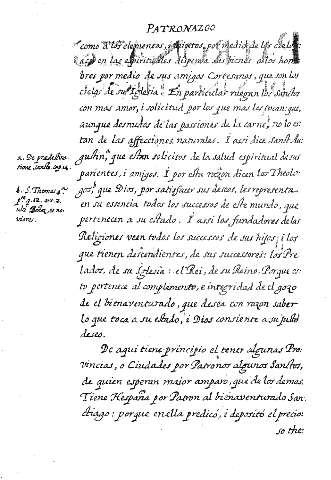 PATRONAZGO
como à los elementos, i mixtos, por medio de los cielos:
assi en las espirituales dispensa sus bienes a los hom
bres por medio de sus amigos Cortesanos, que son los
cielos de su Iglesia. En particular ruegan los Sanctos
con mas amor, i solicitud por los que mas los tocan; que,
aunque desnudos de las passiones de la carne, no lo es-
tan de las affecciones naturales. I assi dice Sanct. Au
gustin, que estan solicitos de la salud espiritual de sus
parientes, i amigos. I por esta razon dicen los Theolo-
gos, que Dios, por satisfacer sus deseos, les representa
en su essencia todos los successos de este mundo, que
pertenecen a su estado. I assi los fundadores de las
Religiones veen todos los successos de sus hijos; i los
que tienen descendientes, de sus successores: los Pre
lados, de su Iglesia: el Rei, de su Reino. Porque es-
to pertenece al complemento, e integridad de el gozo
de el bienaventurado, que desea con razon saber
lo que toca a su estado, i Dios consiente a su justo
deseo.
De aqui tiene principio el tener algunas Pro
vincias, o Ciudades por Patronos algunos Sanctos,
de quien esperan maior amparo, que de los demas.
Tiene Hespaña por Patron al bienaventurado San-
ctiago: porque en ella predicó, i depositó el precio-
so the:
a. De prædestina
tione Sanct. cap. 14.
b. S. Thomas 3ª
pª q. 12. art. 2.